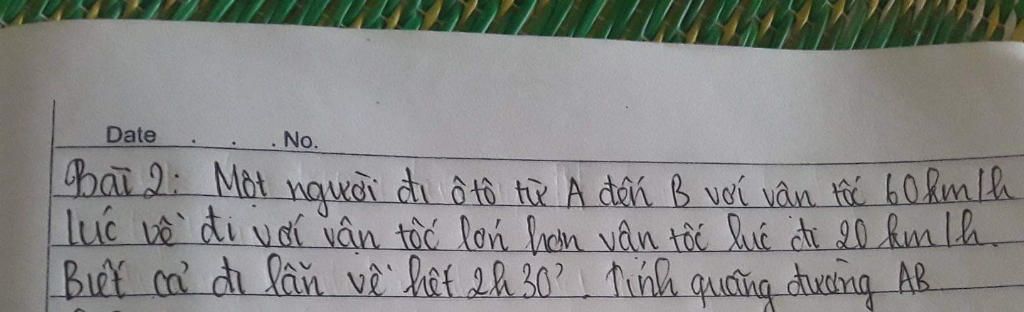 Date . . . No.
Bài 2: Một người đi ôtô từ A đến B với vân tốc 60km/h
lúc về đi với vân tốc lớn hơn vân tốc lúc đi 20 km/h.
Biết cả đi lẫn về hết 2h 30'. Tính quãng đường AB